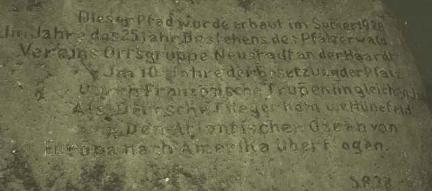 Dieser Pfad wurde erbaut im Sommer 1928
Im Jahre des 25 jähr. Bestehens des Pfälzerwald
Vereins Ortsgruppe Neustadt an der Haardt
Im 10. Jahre der Besetzung der Pfalz
durch Französische Truppen im gleichen J.
Als Deutsche Flieger Köhl u. v. Hünefeld
den Atlantischen Ozean von
Europa nach Amerika überflogen.
S.R.28